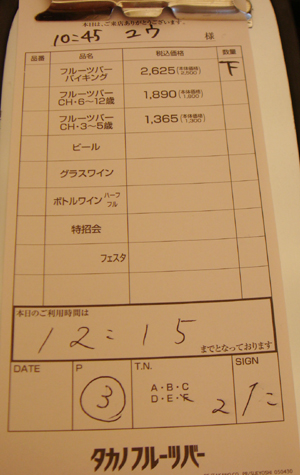 本日は、ご来店ありがとうございます。
10:45 ユウ 様
品番 品名 税込価格 数量
フルーツバー バイキング 2,625 (本体価格 2,500) 下
フルーツバー CH・6〜12歳 1,890 (本体価格 1,800)
フルーツバー CH・3〜5歳 1,365 (本体価格 1,300)
ビール
グラスワイン
ボトルワイン ハーフ フル
特招会
フェスタ
本日のご利用時間は
12:15
までとなっております
DATE P T.N. SIGN
3 A・B・C
D・E・F 2
タカノフルーツバー